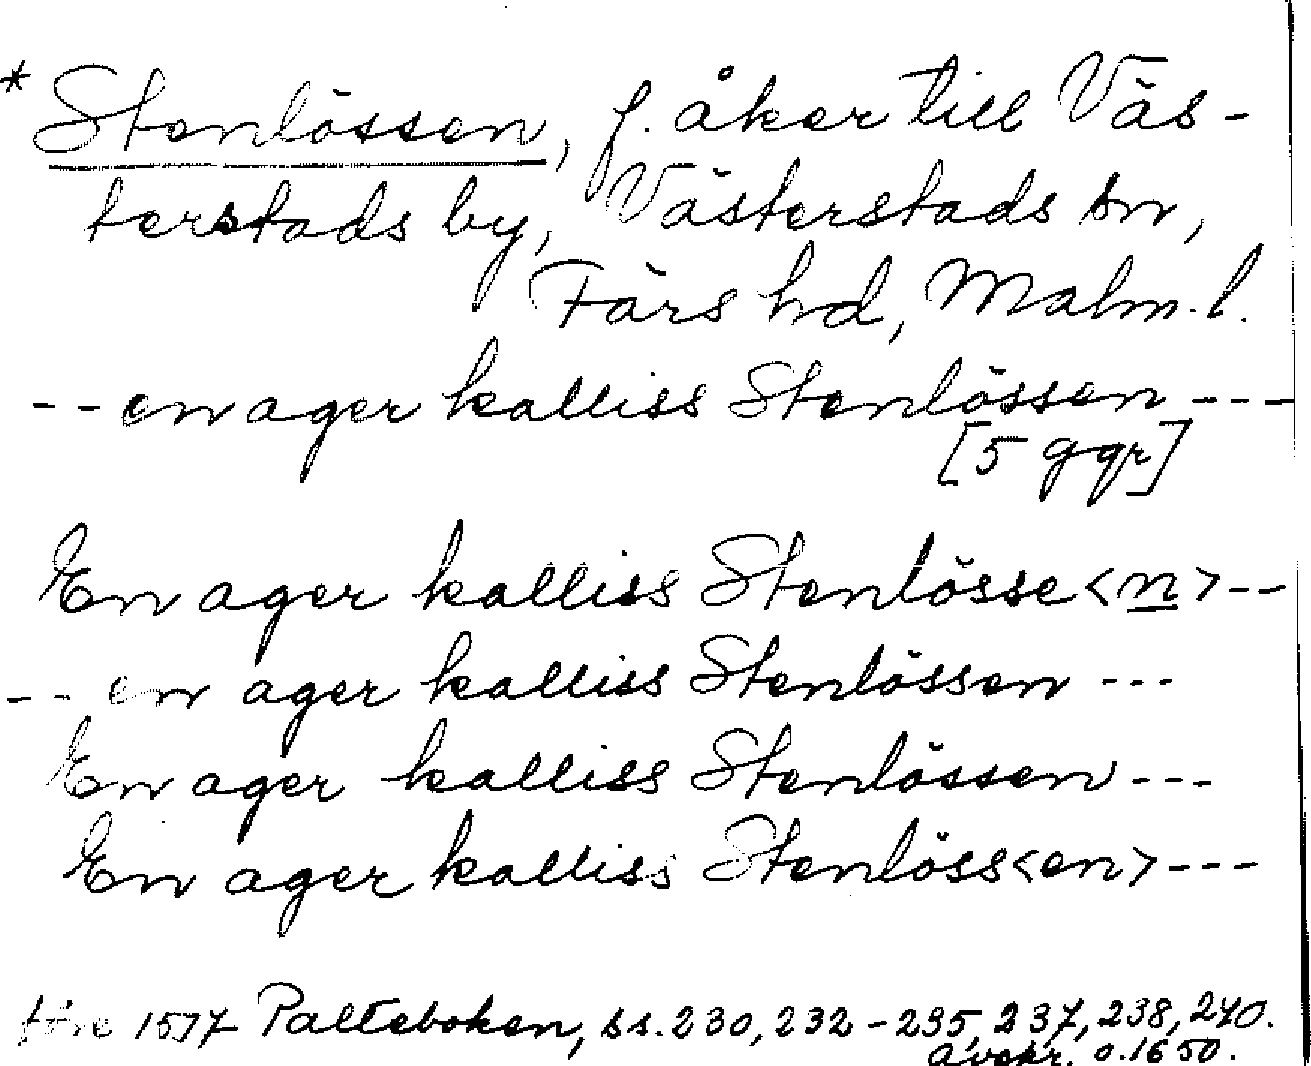 * Stenlössen, f. åker till Väs-
terstads by, Västerstads sn,
Färs hd, Malm. l.
-- en ager kalliss Stenlössen ---
[5 ggr]
En ager kalliss Stenlösse<n>--
-- en ager kalliss Stenlössen ---
En ager kalliss Stenlössen ---
En ager kalliss Stenlöss<en>---
före 1517 Palteboken, ss. 230, 232-235, 237, 238, 240.
Avskr. o. 1650.